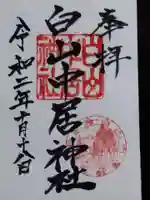 奉拝
白山中居神社
令和二年十月十八日